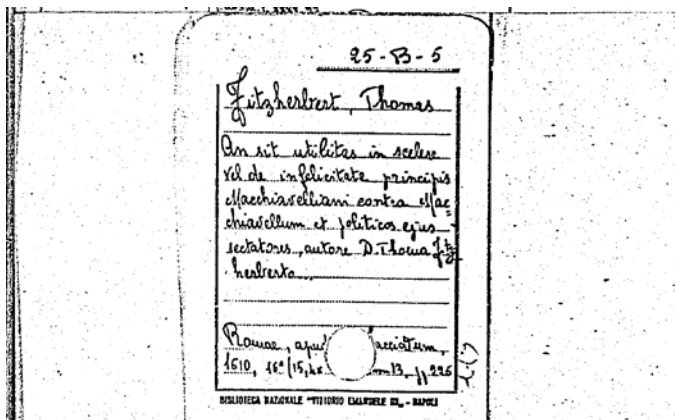 25-B-5
Fitzherbert, Thomas
An sit utilitas in scelere
vel de infelicitate principis
Macchiavelliani contra Mac=
chiavellum et politicos ejus
sectatores, autore D. Thoma Fitz
herberto
Romae, apud
1610, 16°
BIBLIOTECA NAZIONALE "VITTORIO EMANUELE III" - NAPOLI